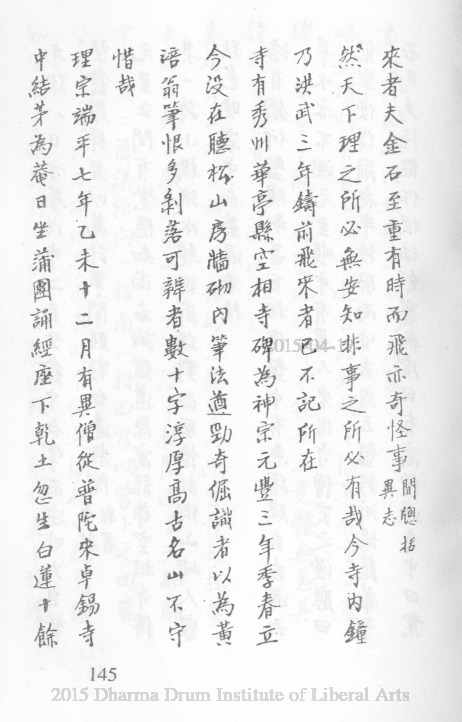 來者夫金石至重有時而飛亦奇怪事聞聰括異志
然天下理之所必無安知非事之所必有哉今寺內鐘
乃洪武三年鑄前飛來者已不記所在
寺有秀州華亭縣空相寺碑為神宗元豐三年季春立
今沒在聽松山房牆砌內筆法遒勁奇倔識者以為黃
涪翁筆恨多剝落可辨者數十字淳厚高古名山不守
惜哉
理宗端平七年乙未十二月有異僧從普陀來卓錫寺
中結茅為菴日坐蒲團誦經座下乾土忽生白蓮十餘
145
2015 Dharma Drum Institute of Liberal Arts